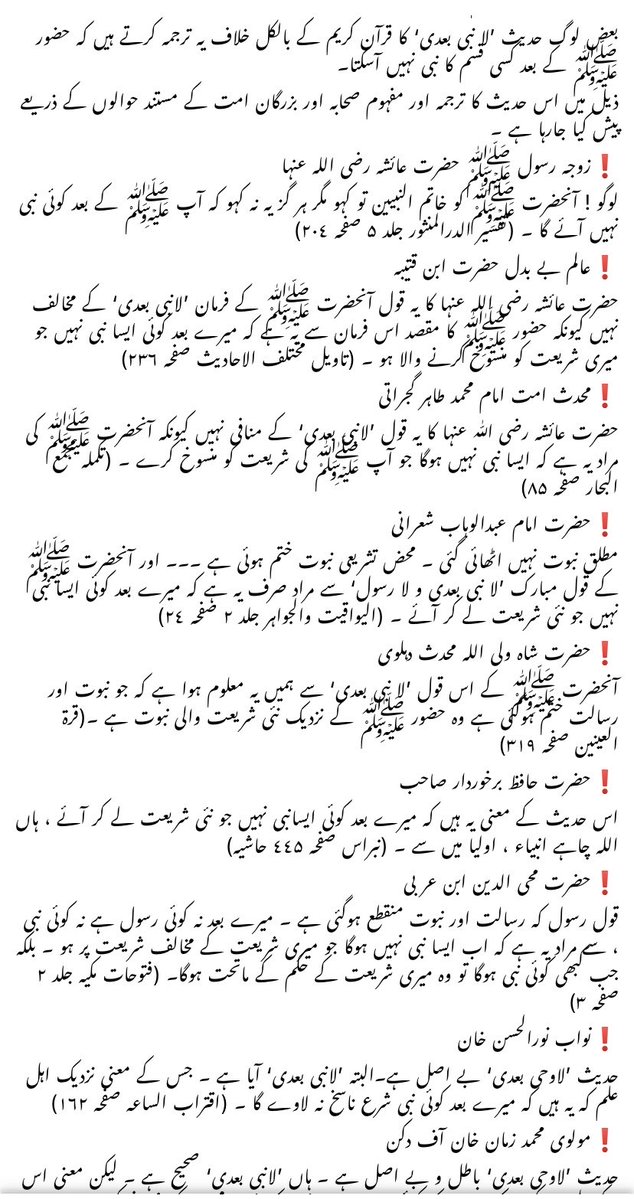 بعض لوگ حدیث ’لا نبی بعدی‘ کا قرآن کریم کے بالکل خلاف یہ ترجمہ کرتے ہیں کہ حضور
ﷺ کے بعد کسی قسم کا نبی نہیں آسکتا۔
ذیل میں اس حدیث کا ترجمہ اور مفہوم صحابہ اور بزرگان امت کے مستند حوالوں کے ذریعے
پیش کیا جارہا ہے ۔
❗ زوجہ رسول ﷺ حضرت عائشہ رضی اللہ عنہا
لوگو ! آنحضرت ﷺ کو خاتم النبیین تو کہو مگر ہر گز یہ نہ کہو کہ آپ ﷺ کے بعد کوئی نبی
نہیں آئے گا ۔ (تفسیر الدرالمنثور جلد ۵ صفحہ ۲۰٤)
❗ عالم بے بدل حضرت ابن قتیبہ
حضرت عائشہ رضی اللہ عنہا کا یہ قول آنحضرت ﷺ کے فرمان ’لانبی بعدی‘ کے مخالف
نہیں کیونکہ حضور ﷺ کا مقصد اس فرمان سے یہ ہے کہ میرے بعد کوئی ایسا نبی نہیں جو
میری شریعت کو منسوخ کرنے والا ہو ۔ (تاویل مختلف الاحادیث صفحہ ۲۳٦)
❗ محدث امت امام محمد طاہر گجراتی
حضرت عائشہ رضی اللہ عنہا کا یہ قول ’لانبی بعدی‘ کے منافی نہیں کیونکہ آنحضرت ﷺ کی
مراد یہ ہے کہ ایسا نبی نہیں ہوگا جو آپ ﷺ کی شریعت کو منسوخ کرے ۔ (تکملہ مجمع
البحار صفحہ ۸۵)
❗ حضرت امام عبدالوہاب شعرانی
مطلق نبوت نہیں اٹھائی گئی ۔ محض تشریعی نبوت ختم ہوئی ہے ۔۔۔ اور آنحضرت ﷺ
کے قول مبارک ’لا نبی بعدی و لا رسول‘ سے مراد صرف یہ ہے کہ میرے بعد کوئی ایسا نبی
نہیں جو نئی شریعت لے کر آئے ۔ (الیواقیت والجواہر جلد ۲ صفحہ ۲٤)
❗ حضرت شاہ ولی اللہ محدث دہلوی
آنحضرت ﷺ کے اس قول ’لا نبی بعدی‘ سے ہمیں یہ معلوم ہوا ہے کہ جو نبوت اور
رسالت ختم ہوگئی ہے وہ حضور ﷺ کے نزدیک نئی شریعت والی نبوت ہے ۔(قرۃ
العینین صفحہ ۳۱۹)
❗ حضرت حافظ برخوردار صاحب
اس حدیث کے معنی یہ ہیں کہ میرے بعد کوئی ایسانبی نہیں جو نئی شریعت لے کر آئے ، ہاں
اللہ چاہے انبیاء ، اولیا میں سے ۔ (نبراس صفحہ ٤٤۵ حاشیہ)
❗ حضرت محی الدین ابن عربی
قول رسول کہ رسالت اور نبوت منقطع ہوگئی ہے ۔ میرے بعد نہ کوئی رسول ہے نہ کوئی نبی
، سے مراد یہ ہے کہ اب ایسا نبی نہیں ہوگا جو میری شریعت کے مخالف شریعت پر ہو ۔ بلکہ
جب کبھی کوئی نبی ہوگا تو وہ میری شریعت کے حکم کے ماتحت ہوگا۔ (فتوحات مکیہ جلد ۲
صفحہ ۳)
❗ نواب نورالحسن خان
حدیث ’لاوحی بعدی‘ بے اصل ہے۔البتہ ’لانبی بعدی‘ آیا ہے ۔ جس کے معنی نزدیک اہل
علم کہ یہ ہیں کہ میرے بعد کوئی نبی شرع ناسخ نہ لاوے گا ۔ (اقتراب الساعہ صفحہ ۱٦۲)
❗ مولوی محمد زمان خان آف دکن
حدیث ’لاوحی بعدی‘ باطل و بے اصل ہے ۔ ہاں ’لانبی بعدی‘ صحیح ہے ۔ لیکن معنی اس